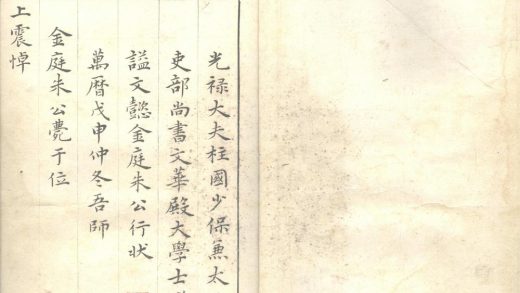 光祿大夫柱國少保兼太
吏部尚書文華殿大學士
謚文懿金庭朱公行狀
萬曆戊申仲冬吾師
金庭朱公薨于位
上震悼